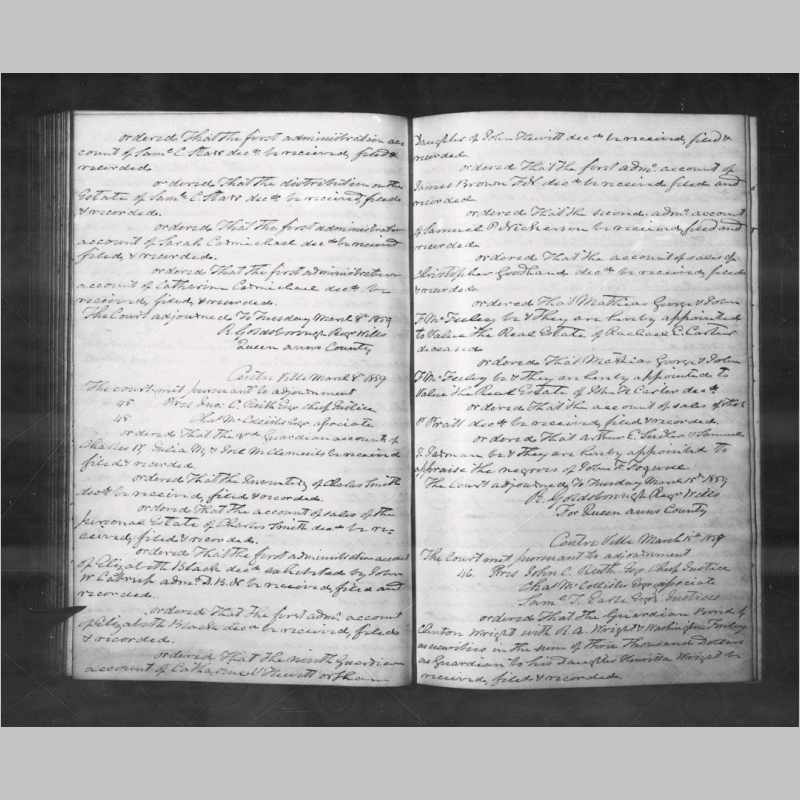 ordered That the first administration ac
count of Saml C. Starr decd be received, filed &
recorded.
ordered That the distribution on the
Estate of Saml C. Starr decd be received, filed
& recorded.
ordered That the first administration
account of Sarah Carmichael decd be received
filed, & recorded.
ordered That the first administration
account of Catharine Carmichael decd be
received, filed, & recorded.
The Court adjourned to Tuesday March 8th 1859
R. Goldsborough Regr Wills
Queen anns County
Centre Ville March 8th 1859
The court met pursuant to adjournment
45 Pres Jno. C. Ruth Esqr Chief Justice
45 Chas McCollister Esqr associate
ordered That the Guardian account of
Charles W. Julia M, & McClements be received
filed & recorded.
ordered That the Inventory of Charles Smith
decd be received, filed & recorded.
ordered That the account of sales of the
personal Estate of Charles Smith decd be re-
ceived, filed & recorded.
ordered That the first administration account
of Elizabeth Black decd exhibited by John
W admr D. B. N be received, filed and
recorded.
ordered That the first admn account
of Elizabeth Black decd be received, filed
& recorded.
ordered That the ninth Guardian
account of Catharine Hewitt
Daughter of John Hewitt decd be received, filed &
recorded.
ordered That the first admn account of
James Brown decd be received filed and
recorded
ordered That the second admn account
of Samuel P. Nickerson be received, filed and
recorded
ordered That the account of sales of
Christopher Goodhand decd be received, filed
& recorded.
ordered That Mathias George & John
F. McFeeley be & they are hereby appointed
to Value the Real Estate of Rachael E. Carter
deceased
ordered That Mathias George & John
F. McFeeley be & they are hereby appointed to
Value the Real Estate of John H Carter decd
ordered That the account of sales of
Pratt decd be received, filed & recorded.
ordered That Arthur E. Sudler & Samuel
J. Jarman be & they are hereby appointed to
appraise the negroes of John F.
The Court adjourned, to Tuesday March 15th 1859
R. Goldsborough Regr Wills
For Queen anns County
Centre Ville March 15th 1859
The Court met pursuant to adjournment
46. Pres John C. Ruth Esqr Chief Justice
Chas McCollister Esqr associate
Saml T. Earle Esqr Justices
ordered That the Guardian Bond of
Clinton Wright with R. A. Wright & Washington Finley
as securities in the sum of three Thousand Dollars
as Guardian to his Daughter Henrietta Wright be
received, filed & recorded.